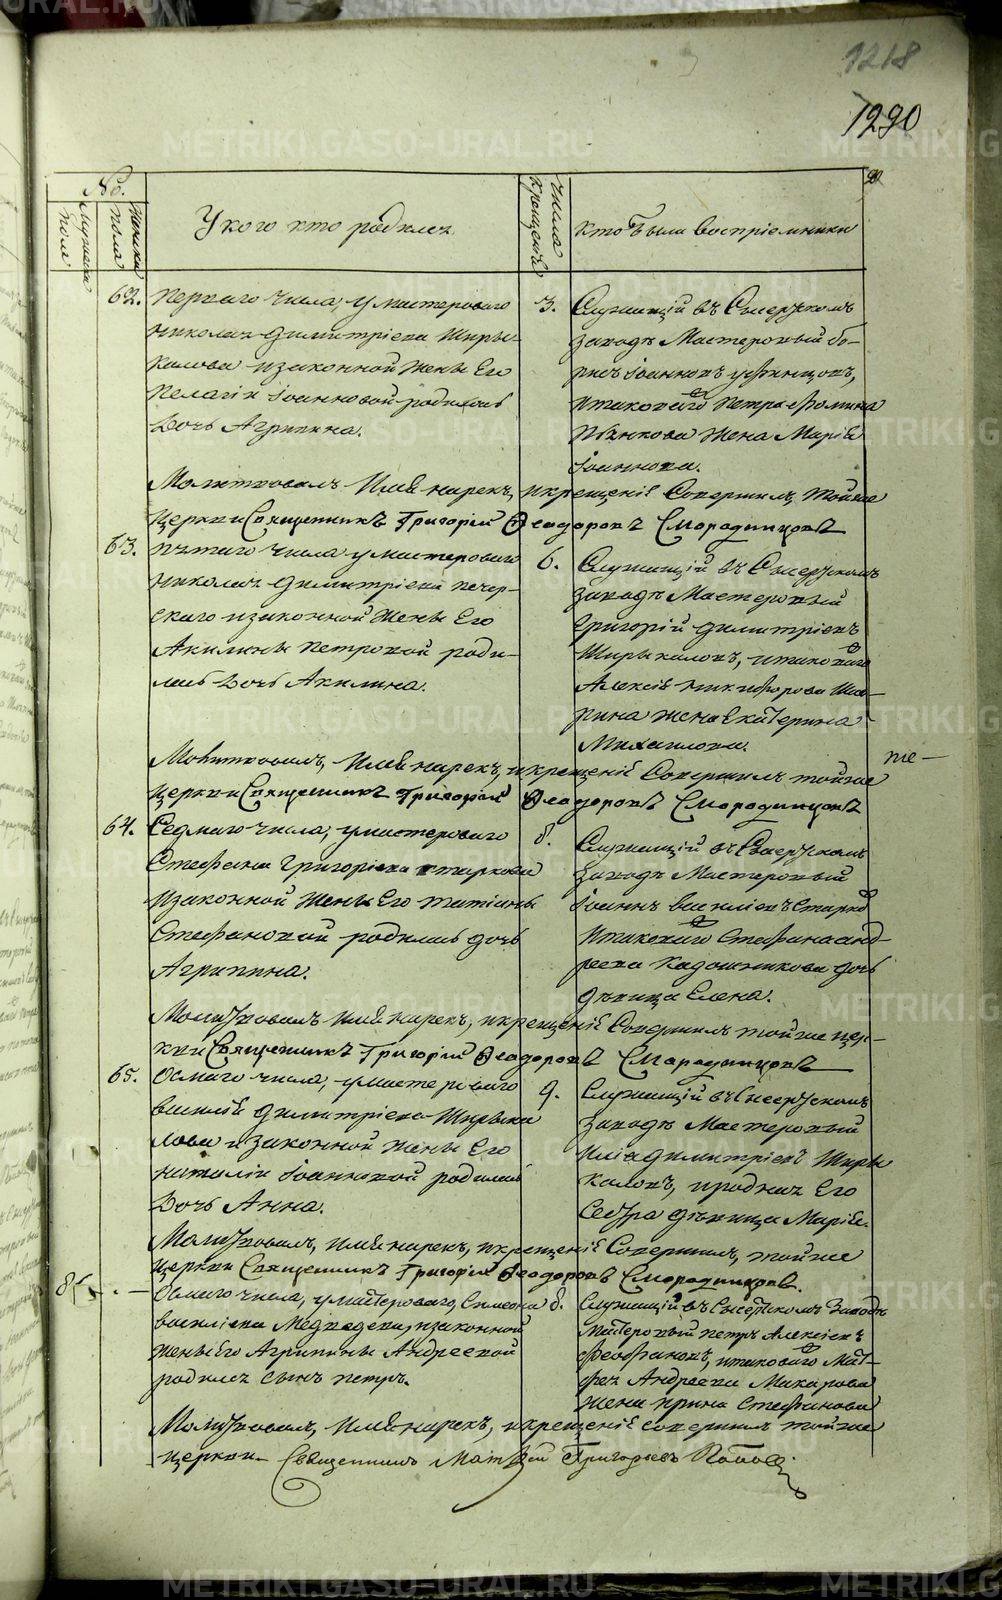 1218
1290
№.
Мужеска полк
Женска пола
У кого кто родился
Числа крещенiя
кто были воспрiемники
62. перваго числа, у мастероваго
Николая Димитрiева Ширы-
калова изаконной жены Его
Пелагiи Iоанновой родилась
Дочь Агрипина.
3. Служащiй въ Сысертскомъ
заводѣ Мастеровый Бо-
рисъ Iоанновъ
итаковаго Петра Фомина
Пьянкова жена Марiя
Iоаннова.
Молитвовалъ Имя нарекъ, икрещенiе Совершилъ тойже
Церкви Священникъ Григорiй Феодоровъ Смородинцовъ
63. пятаго числа умастероваго
Николая Димитрiева печер-
скаго изаконной жены Его
Акилины петровой роди-
лась Дочь Акилина.
6. Служащiй въ Сысертскомъ
заводѣ Мастеровый
Григорiй Димитрiевъ
Ширыкаловъ, итаковаго
Алексiя Никифорова Ша-
рина жена Екатерина
Михаилова.
Молитвовалъ, Имя нарекъ, икрещенiе Совершилъ тойже
же—
Церкви Священникъ Григорiй Феодоровъ Смородинцовъ
64. Седмаго числа, умастероваго
Стефана Григорiева Старкова
изаконной жены Его татiаны
Стефановой родилась дочь
Агрипина.
8. Служащiй въ Сысертскомъ
заводѣ Мастеровый
Iоаннъ Василiевъ Старко
итаковаго Стефана Анд-
реева Кадошникова дочь
дѣвица Елена.
Молитвовалъ Имя нарекъ, икрещенiе Совершилъ тойже цер-
кви Священникъ Григорiй Феодоровъ Смородинцовъ
65. Осмаго числа, умастероваго
Василiя Димитрiева Ширыка
лова изаконной жены Его
Наталiи Iоанновой родилась
Дочь Анна.
9. Служащiй въ Сысертскомъ
заводѣ Мастеровый
Илiя Димитрiевъ Ширы
каловъ, иродная Его
Сестра дѣвица Марiя.
Молитвовалъ, имя нарекъ, икрещенiе Совершилъ, тойже
Церкви Священникъ Григорiй Феодоровъ Смородинцовъ.
85. — Осмаго числа, умастероваго, Симеона
василiева Медведева, изаконной
жены Его Агрипины Андреевой
родился сынъ петръ.
8. Служащiй въ Сысертскомъ Заводѣ
Мастеровый петръ Алексiевъ
Феофановъ, итаковаго Мат-
фея Андреева Макарова
жена ирина Стефанова
Молитвовалъ, Имя нарекъ, икрещенiе совершилъ тойже
церкви Священникъ Матвей Григорьевъ Поповъ
METRIKI.GASO-URAL.RU